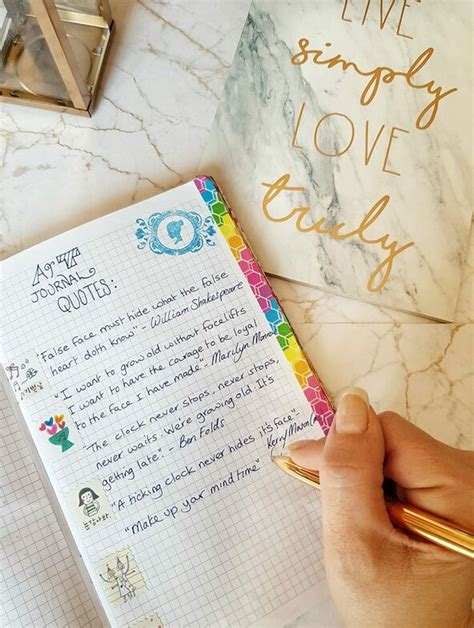 LIVE
simply
LOVE
truly
ArT
JOURNAL
QUOTES:
"False face must hide what the false
heart doth know" - William Shakespeare
"I want to grow old without facelifts
I want to have the courage to be loyal
to the face I have made - Marilyn Monroe
"The clock never stops, never stops,
never waits. We're growing old. It's
getting late". - Ben Folds
"A ticking clock never hides it's face"
Kerry
"Make up your mind time"